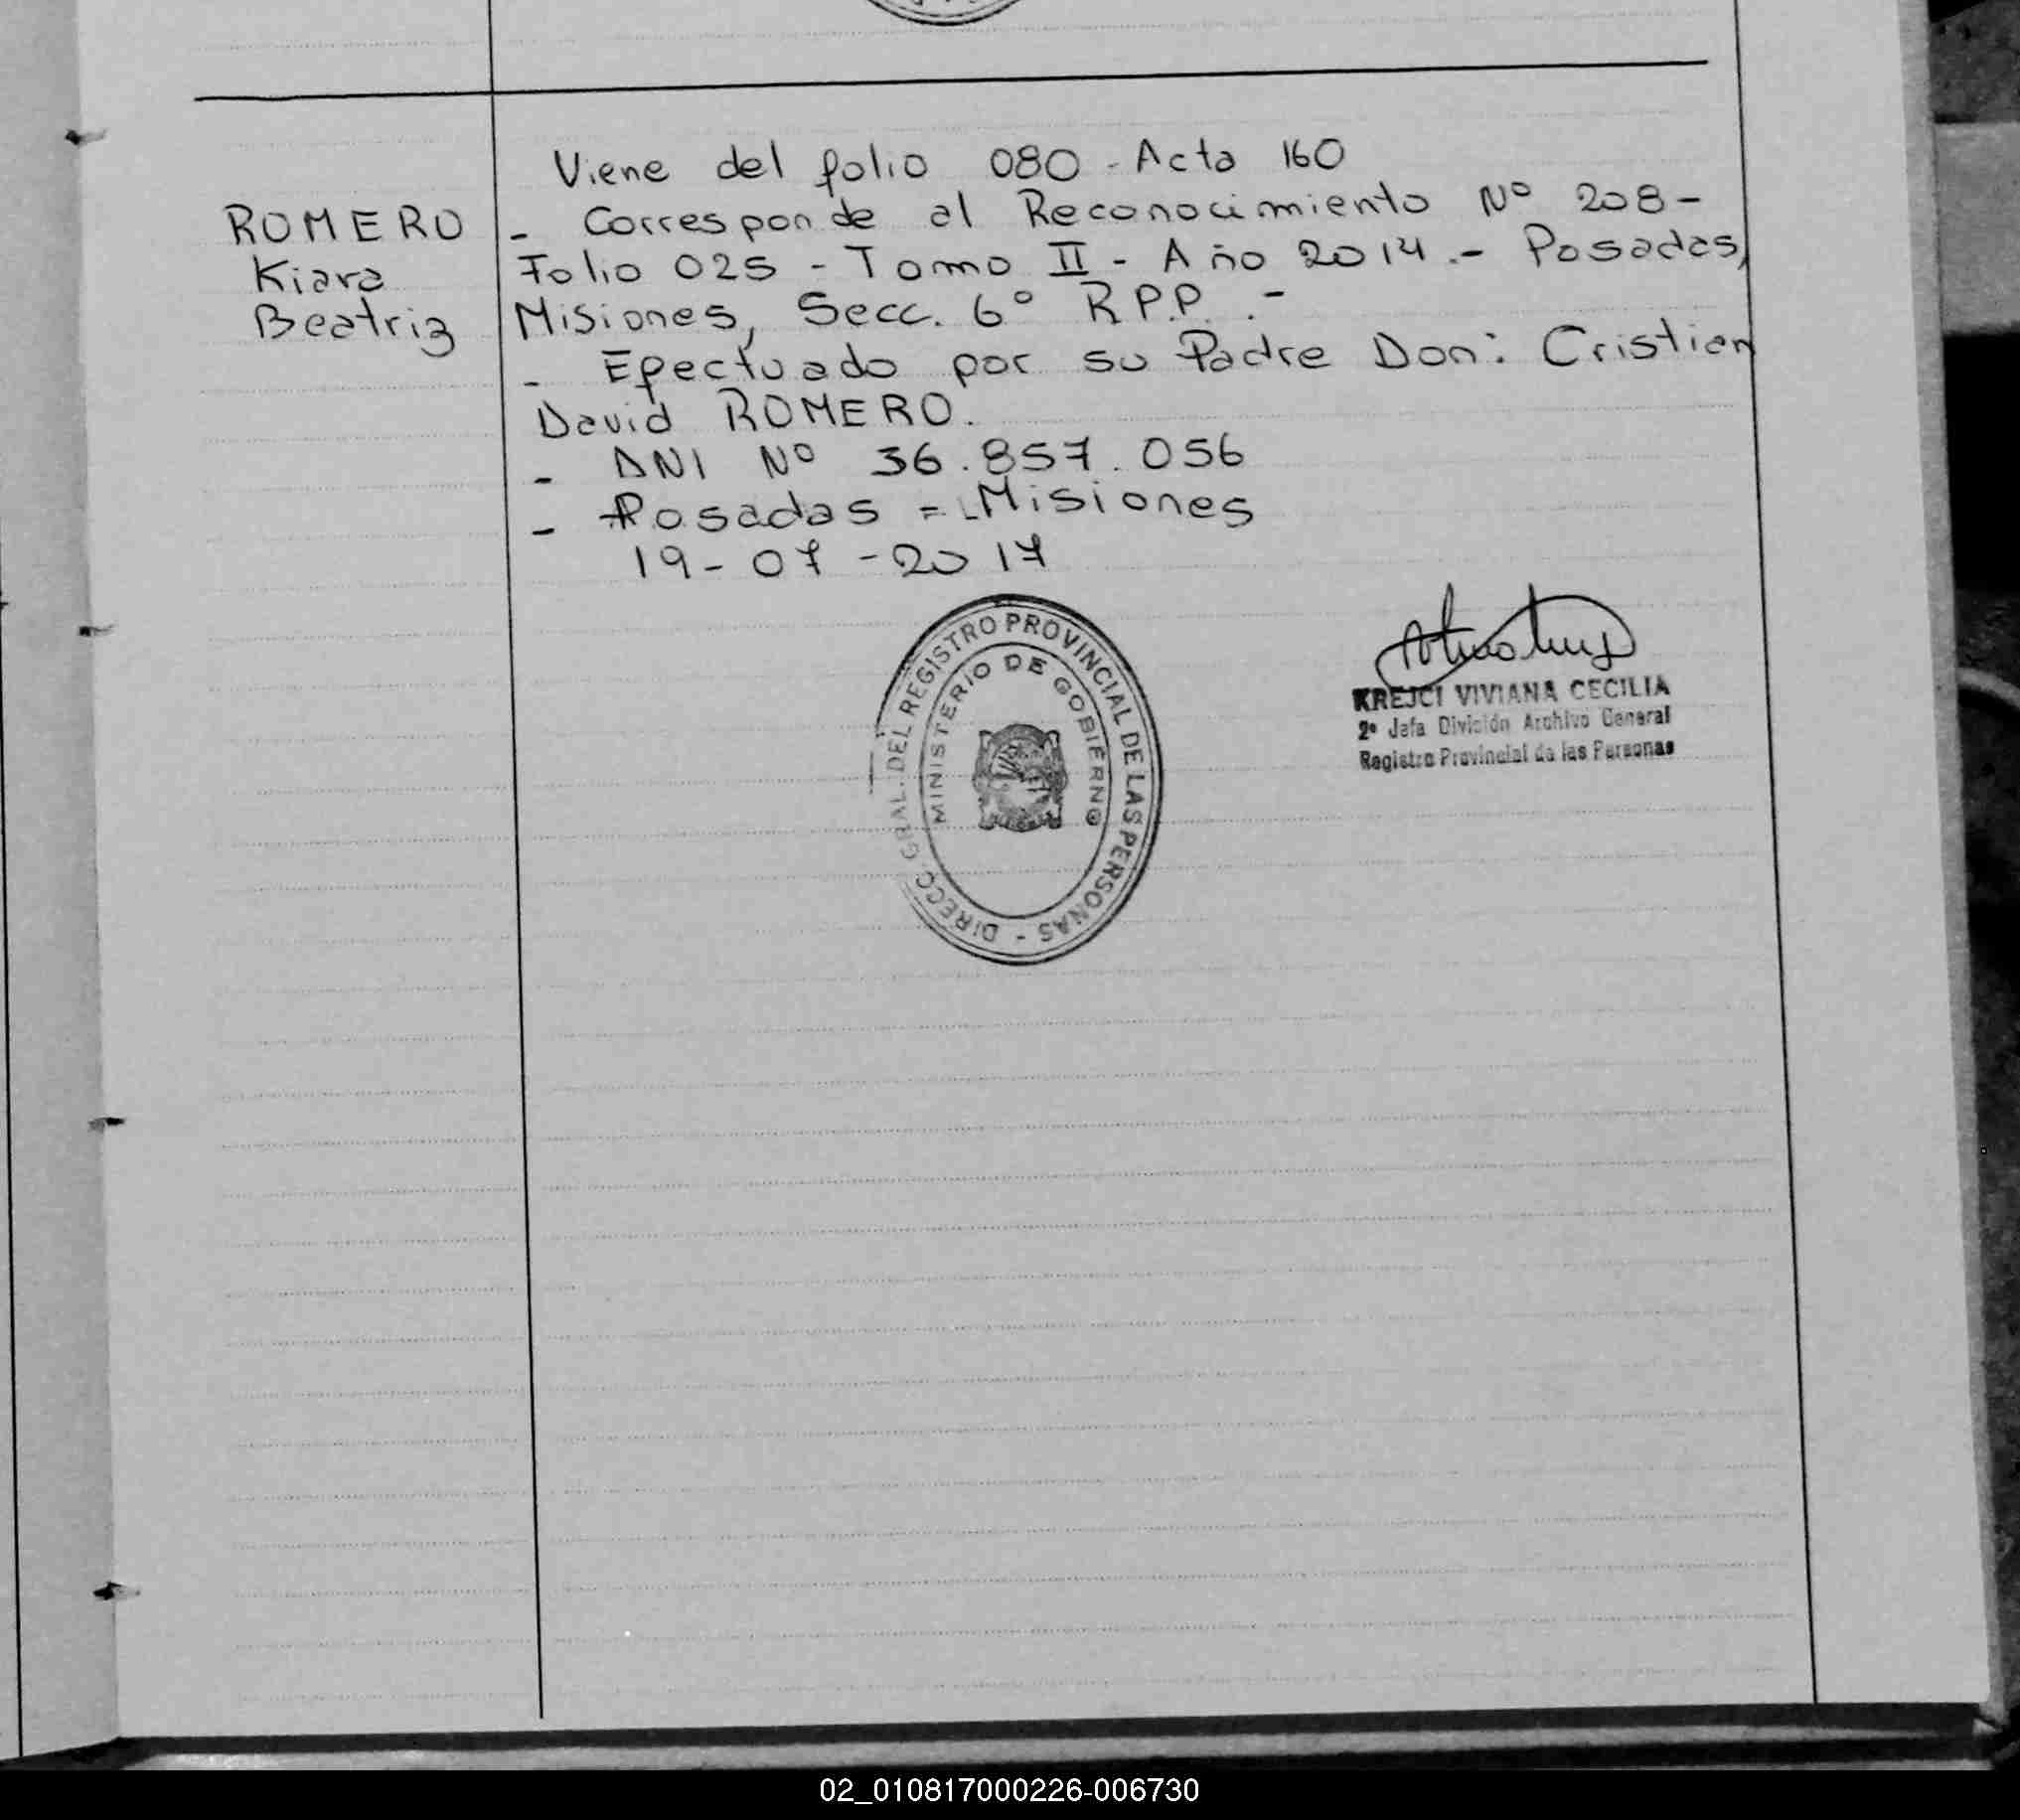 Viene del folio 080 - Acta 160
ROMERO
Kiara
Beatriz
- Corresponde al Reconocimiento Nº 208 -
Folio 025 - Tomo II - Año 2014 .- Posadas,
Misiones, Secc. 6º R.P.P. -
- Efectuado por su Padre Don: Cristian
David ROMERO.
- DNI Nº 36.857.056
- Posadas = Misiones
19-07-2017
DIRECC. GRAL. DEL REGISTRO PROVINCIAL DE LAS PERSONAS -
MINISTERIO DE GOBIERNO
KREJCI VIVIANA CECILIA
2º Jefa División Archivo General
Registro Provincial de las Personas
02_010817000226-006730